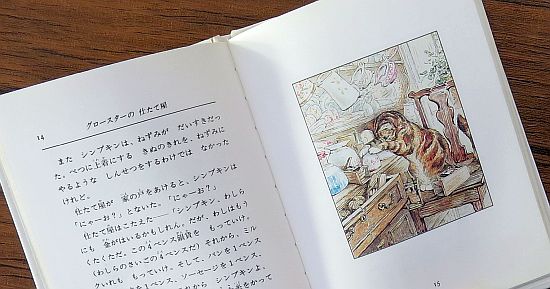 14
グロースターの 仕たて屋
また シンプキンは、ねずみが だいすきだっ
た。べつに上着にする きぬのきれを、ねずみに
やるような しんせつをするわけでは なかった
けれど。
仕たて屋が 家の戸をあけると、シンプキンは
「にゃーお?」とないた。「にゃーお?」
仕たて屋はこたえた――「シンプキン、わしら
にも 金がはいるかもしれん。だが、わしはもう
くたくただ。この4ペンス銀貨を もっていけ。
(わしらのさいごの4ペンスだ)それから、ミル
クいれも もっていけ。そして、パンを1ペンス、
ミルクを1ペンス、ソーセージを1ペンス、
それから シンプキンよ、
かって
15